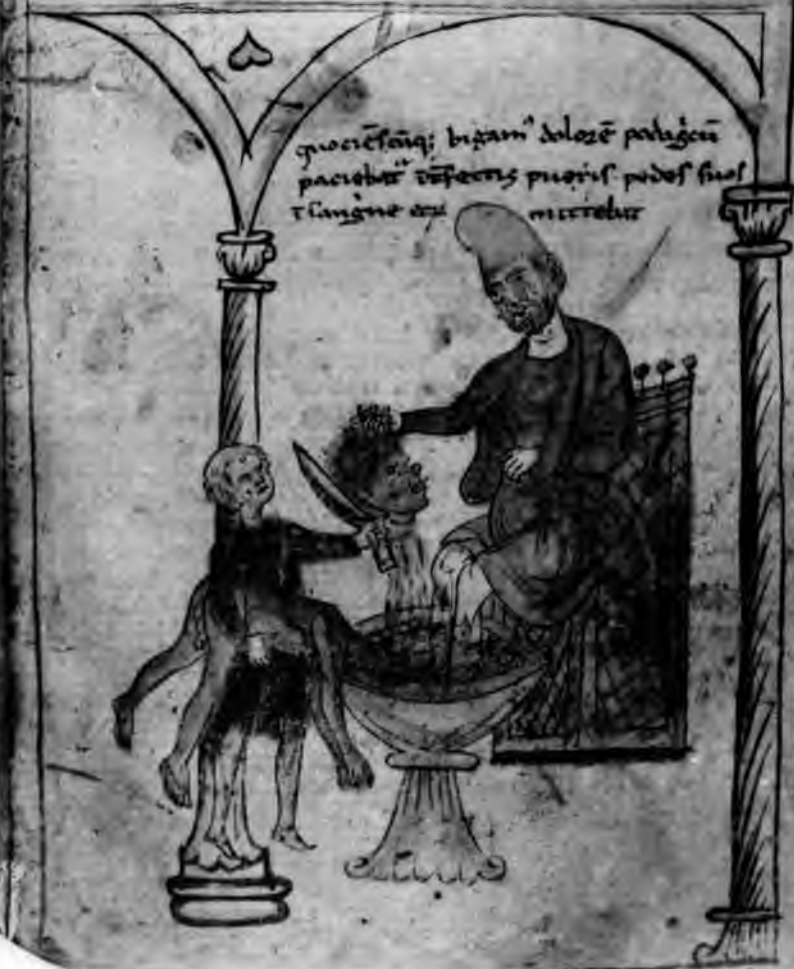 quociēscūq; bigamꝰ dolorē podagͥcū
paciebat᷑ īt̄fectis pueris pedes suos
ī sanguīe mittebat